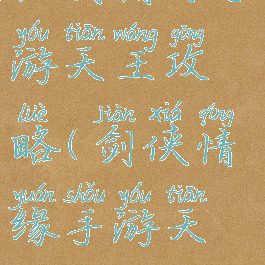 yóu tiān wáng gōng
游天王攻
lüè jiàn xiá qíng
略(剑侠情
yuán shǒu yóu tiān
缘手游天